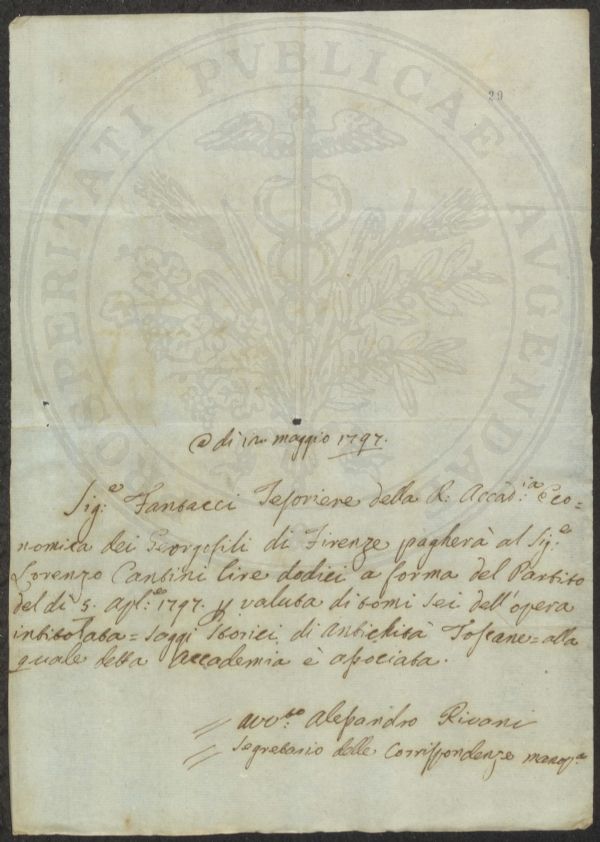 PROSPERITATI PVBLICAE AVGENDAE
29
a dì maggio 1797.
Sig.e Fantacci Tesoriere della R. Accad.ia Eco=
nomica dei Georgofili di Firenze pagherà al Sig.e
Lorenzo Cantini lire dodici a forma del Partito
del dì 5. apl.e 1797. p valuta di tomi sei dell'opera
intitolata = Saggi Storici di Antichità Toscane = alla
quale detta Accademia è associata.
// Avv.to Alessandro Rivani
// Segretario delle Corrispondenze